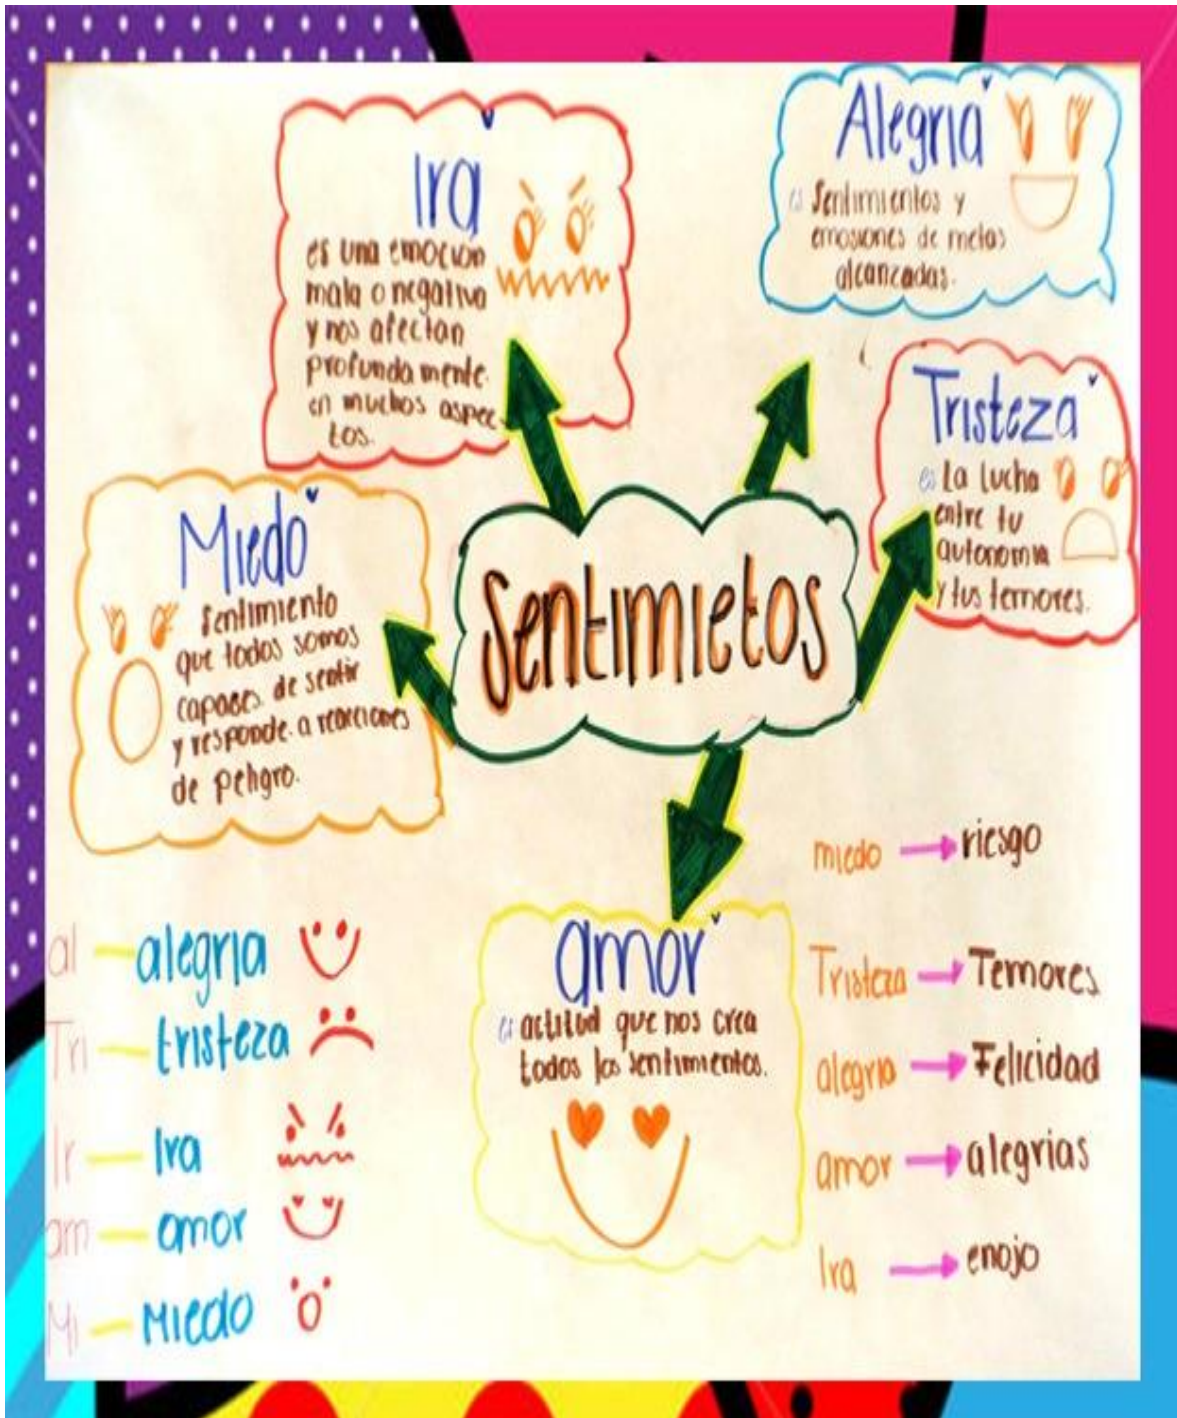 Ira
es una emoción
mala o negativa
y nos afectan
profundamente
en muchos aspec
tos.
Alegria
es Sentimientos y
emosiones de metas
alcanzadas.
Tristeza
es La lucha
entre tu
autonomia
y tus temores.
Miedo
Sentimiento
que todos somos
capases de sentir
y responde a reacciones
de peligro.
Sentimietos
amor
es actitud que nos crea
todos los sentimientos.
al — alegria
Tri — tristeza
Ir — Ira
am — amor
Mi — Miedo
miedo → riesgo
Tristeza → Temores
alegria → Felicidad
amor → alegrias
Ira → enojo